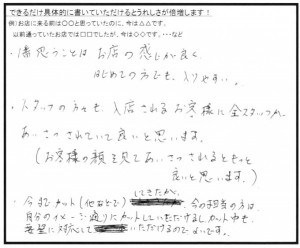 できるだけ具体的に書いていただけるとうれしさが倍増します!
例)お店に来る前は〇〇と思っていたのに、今は△△です。
以前通っていたお店では□□でしたが、今は◇◇です。…など
・漠思うことは お店の感じが良く、
はじめての方でも、入りやすい。
・スタッフの方々も、入店されるお客様に全スタッフが、
あいさつされていて良いと思います。
(お客様の顔を見てあいさつされるともっと
良いと思います。)
・今までカット(他などで)してきたが、今の担当の方は、
自分のイメージ通りにカットしていただけるしカット中も、
要望に対応していただけるのでよいです。